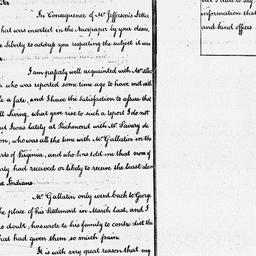 Sir
In Consequence of Mr Jefferson's Letter
that was inserted in the Newspaper by your desire,
the liberty to address you respecting the subject it was
I am perfectly well acquainted with Mr Albert
who was reported some time ago to have met with
a fate, and I have the satisfaction to assure that
still Living, what gave rise to such a report I do not
but I was lately at Richmond with Mr Savary de
who was all the time with Mr Gallatin in the
parts of Virginia, and who has told me that none of
party had received or likely to receive the least
the Indians
Mr Gallatin only went back to George
the place of his Settlement in March last, and I
no doubt, has wrote to his family to contradict the
that had given them so much pain.
It is with very great reason that my
information that
and land offices